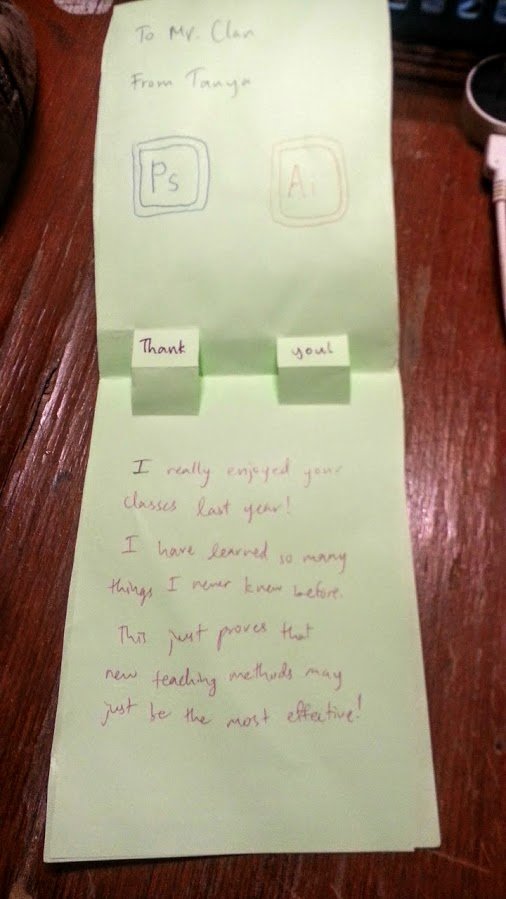 To Mr. Clan
From Tanya
Ps Ai
Thank you!
I really enjoyed your
classes last year!
I have learned so many
things I never knew before.
This just proves that
new teaching methods may
just be the most effective!